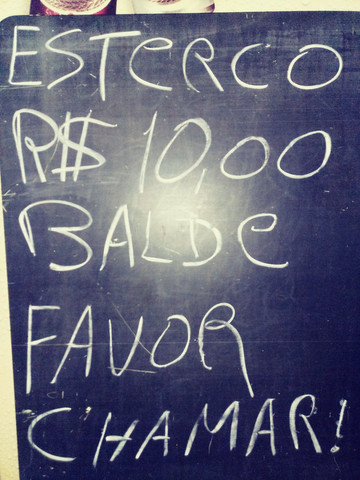 ESTERCO
R$ 10,00
BALDE
FAVOR
CHAMAR!